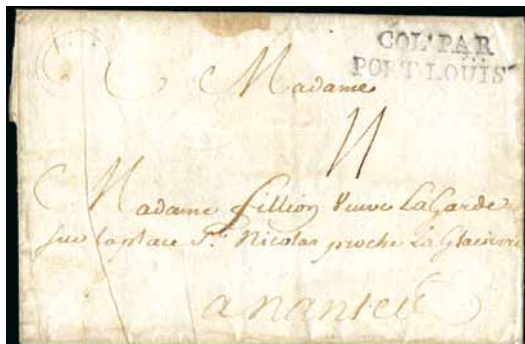 COL·PAR
PORT LOÜIS
Madame
11
Madame fillion Veuve LaGarde
sur laplace St. Nicolas proche La Glaciere
a nantes